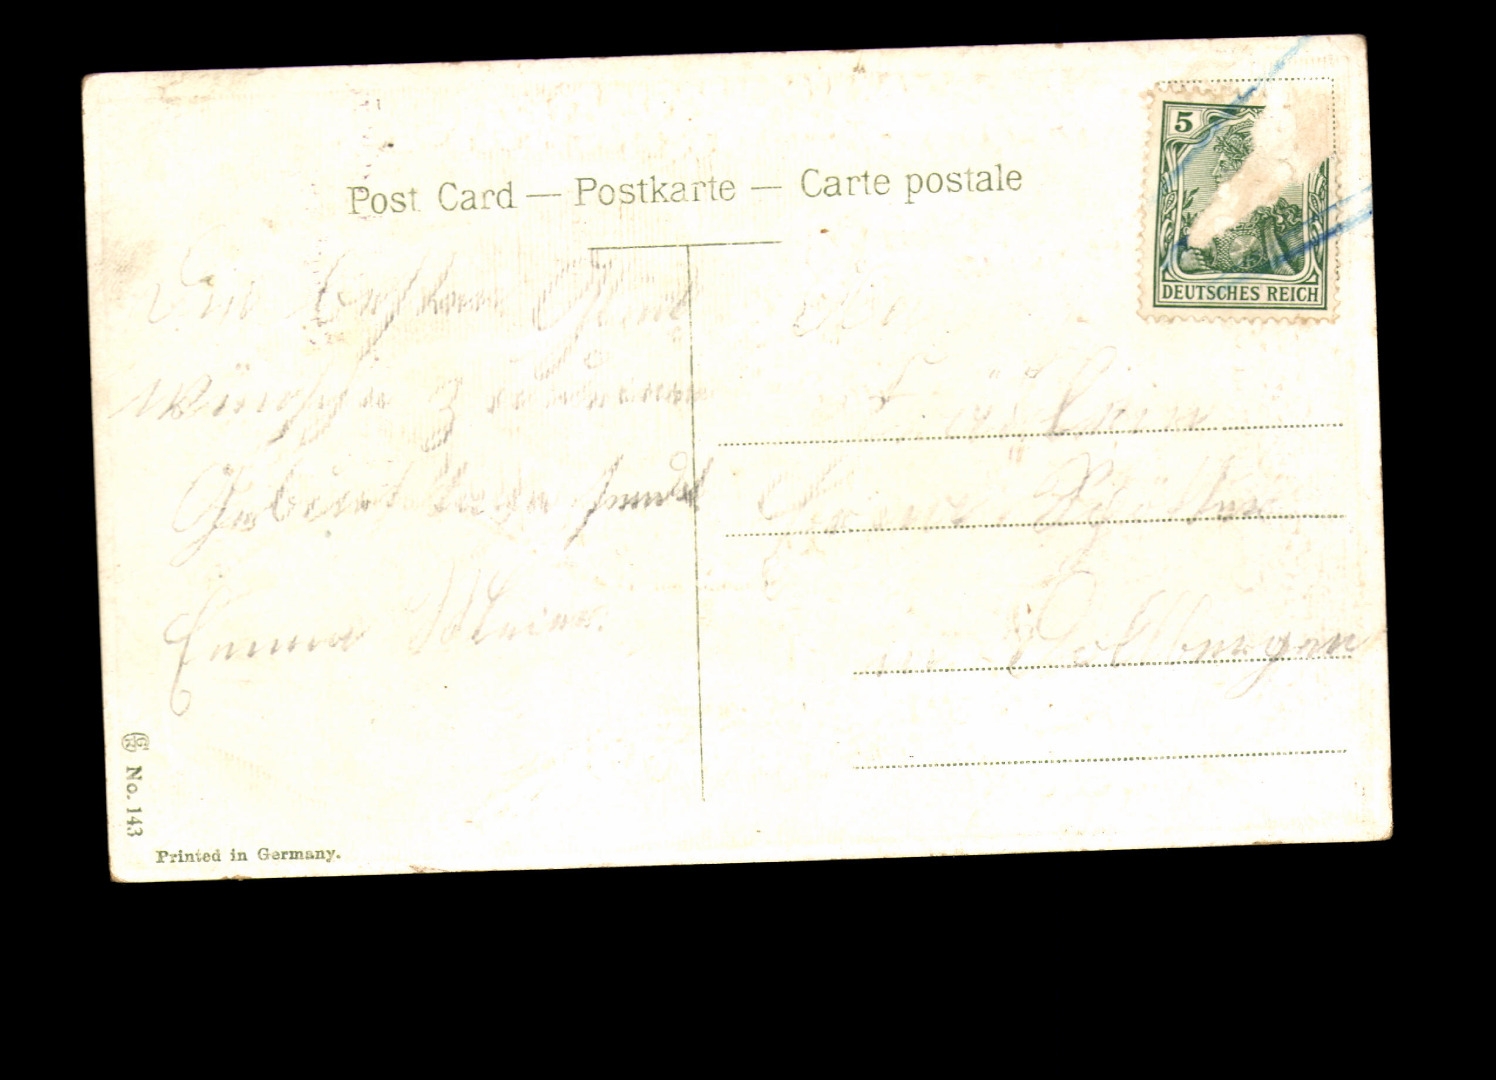 Post Card — Postkarte — Carte postale
5
DEUTSCHES REICH
Die besten Glück
wünsche z
Geburtstage sendet
Emma
An
Fräulein
in Dollbergen
No. 143
Printed in Germany.